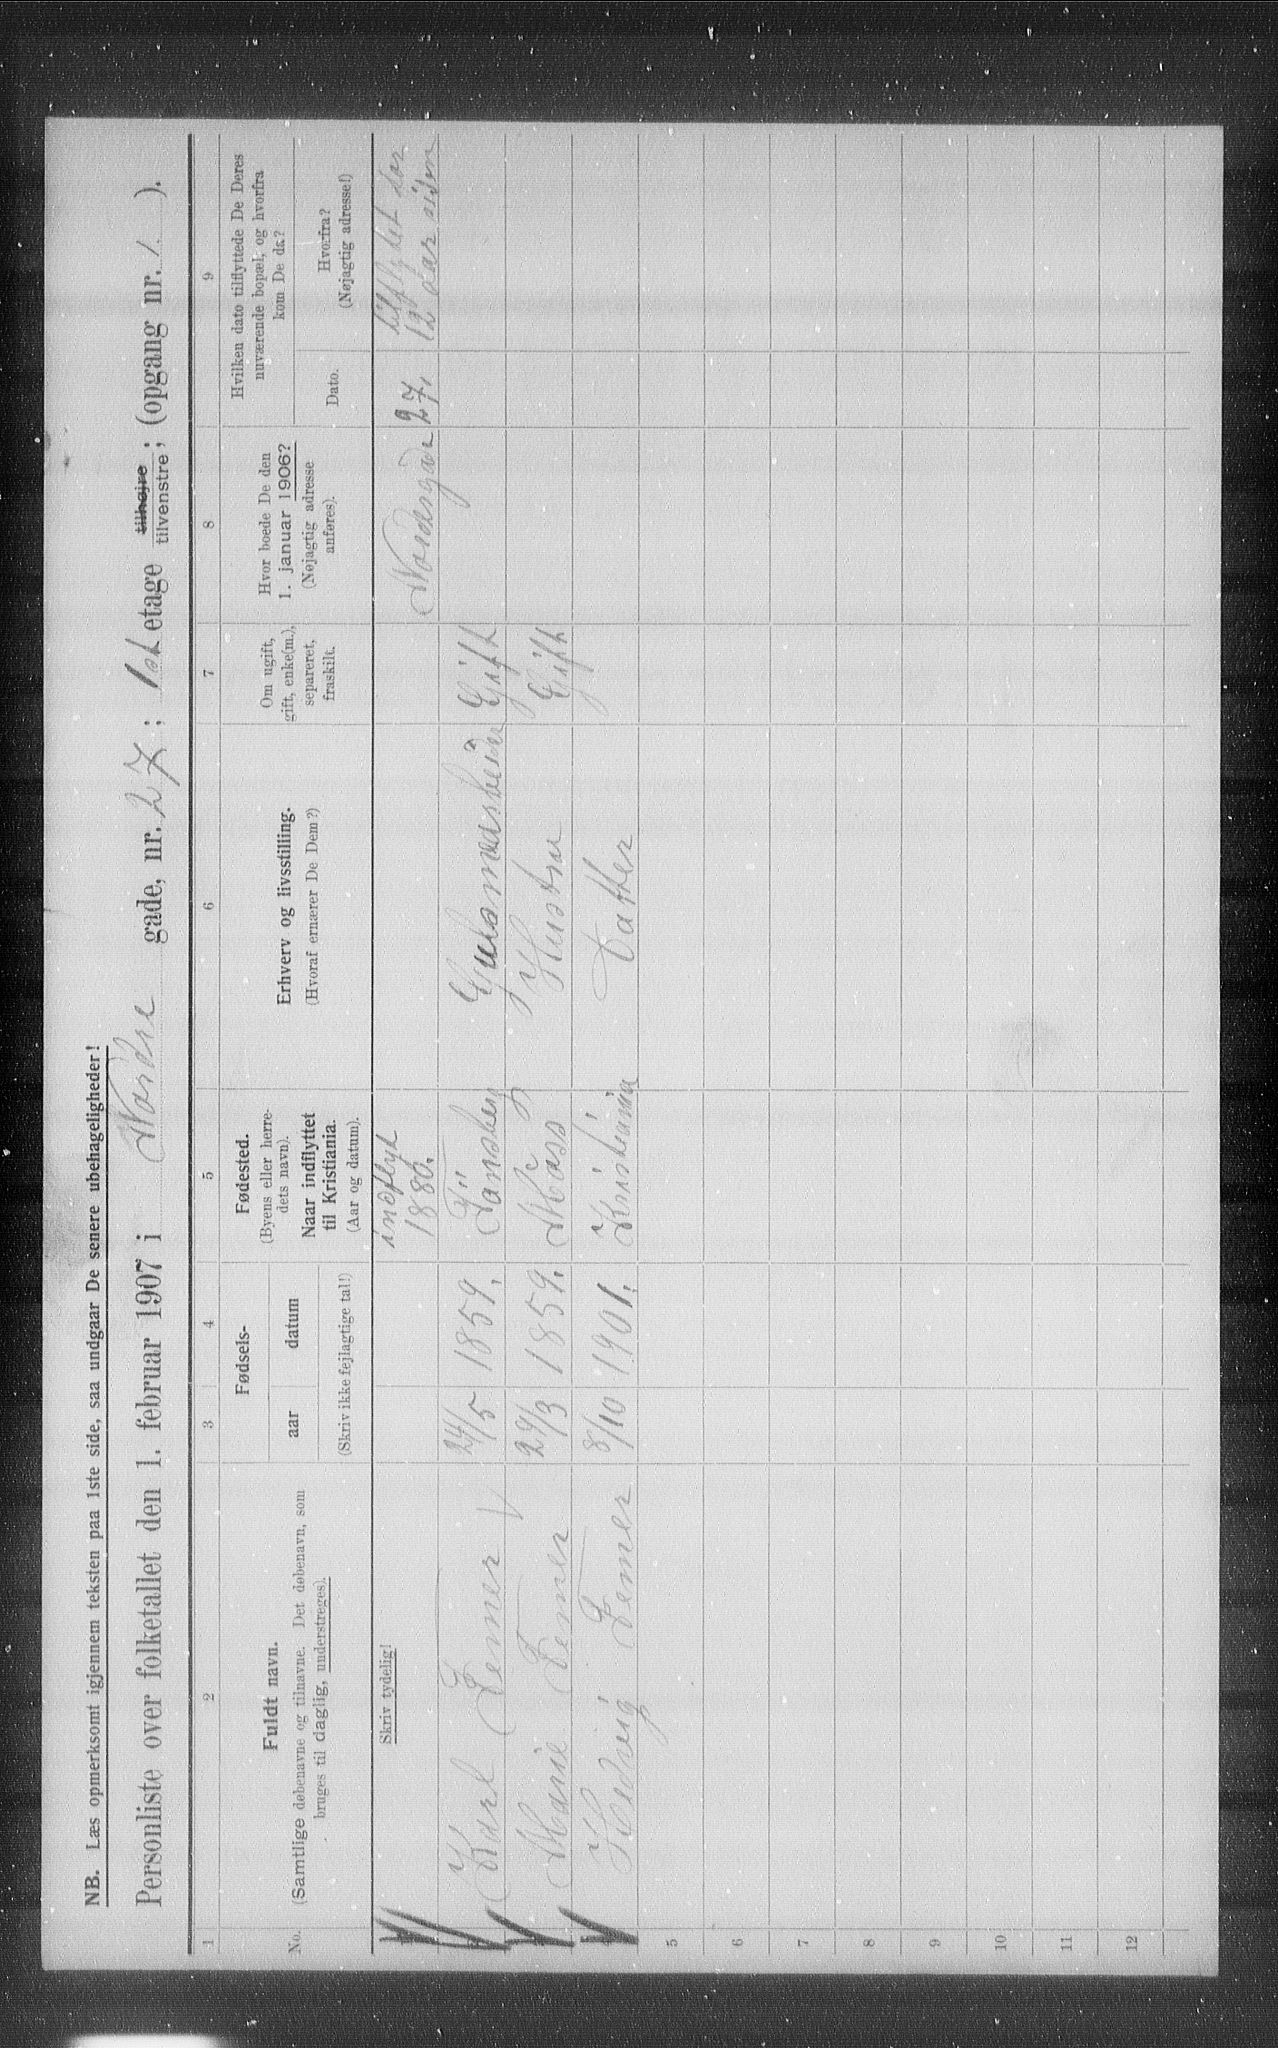 NB. Læs opmerksomt igjennem teksten paa 1ste side, saa undgaar De senere ubehageligheder!
Personliste over folketallet den 1. februar 1907 i Nordre gade, nr. 27; 1st etage tilhøjre tilvenstre; (opgang nr. 1. ).
1 2 3 4 5 6 7 8 9
No.
Fuldt navn.
(Samtlige døbenavne og tilnavne. Det døbenavn, som
bruges til daglig, understreges).
Fødsels-
aar datum
(Skriv ikke fejlagtige tal!)
Fødested.
(Byens eller herre-
dets navn).
Naar indflyttet
til Kristiania.
(Aar og datum).
Erhverv og livsstilling.
(Hvoraf ernærer De Dem?)
Om ugift,
gift, enke(m.),
separeret,
fraskilt.
Hvor boede De den
1. januar 1906?
(Nøjagtig adresse
anføres).
Hvilken dato tilflyttede De Deres
nuværende bopæl, og hvorfra
kom De da?
Dato.
Hvorfra?
(Nøjagtig adresse!)
Skriv tydelig!
indflyt
1886.
Nordregade 27.
tilflytet for
12 aar siden
Karl Femer 24/5 1859. Tönsberg Gift
Marie Femer 29/3 1859. Moss Hustru Gift
Hedvig Femer 8/10 1901. Kristiania Datter
5
6
7
8
9
10
11
12